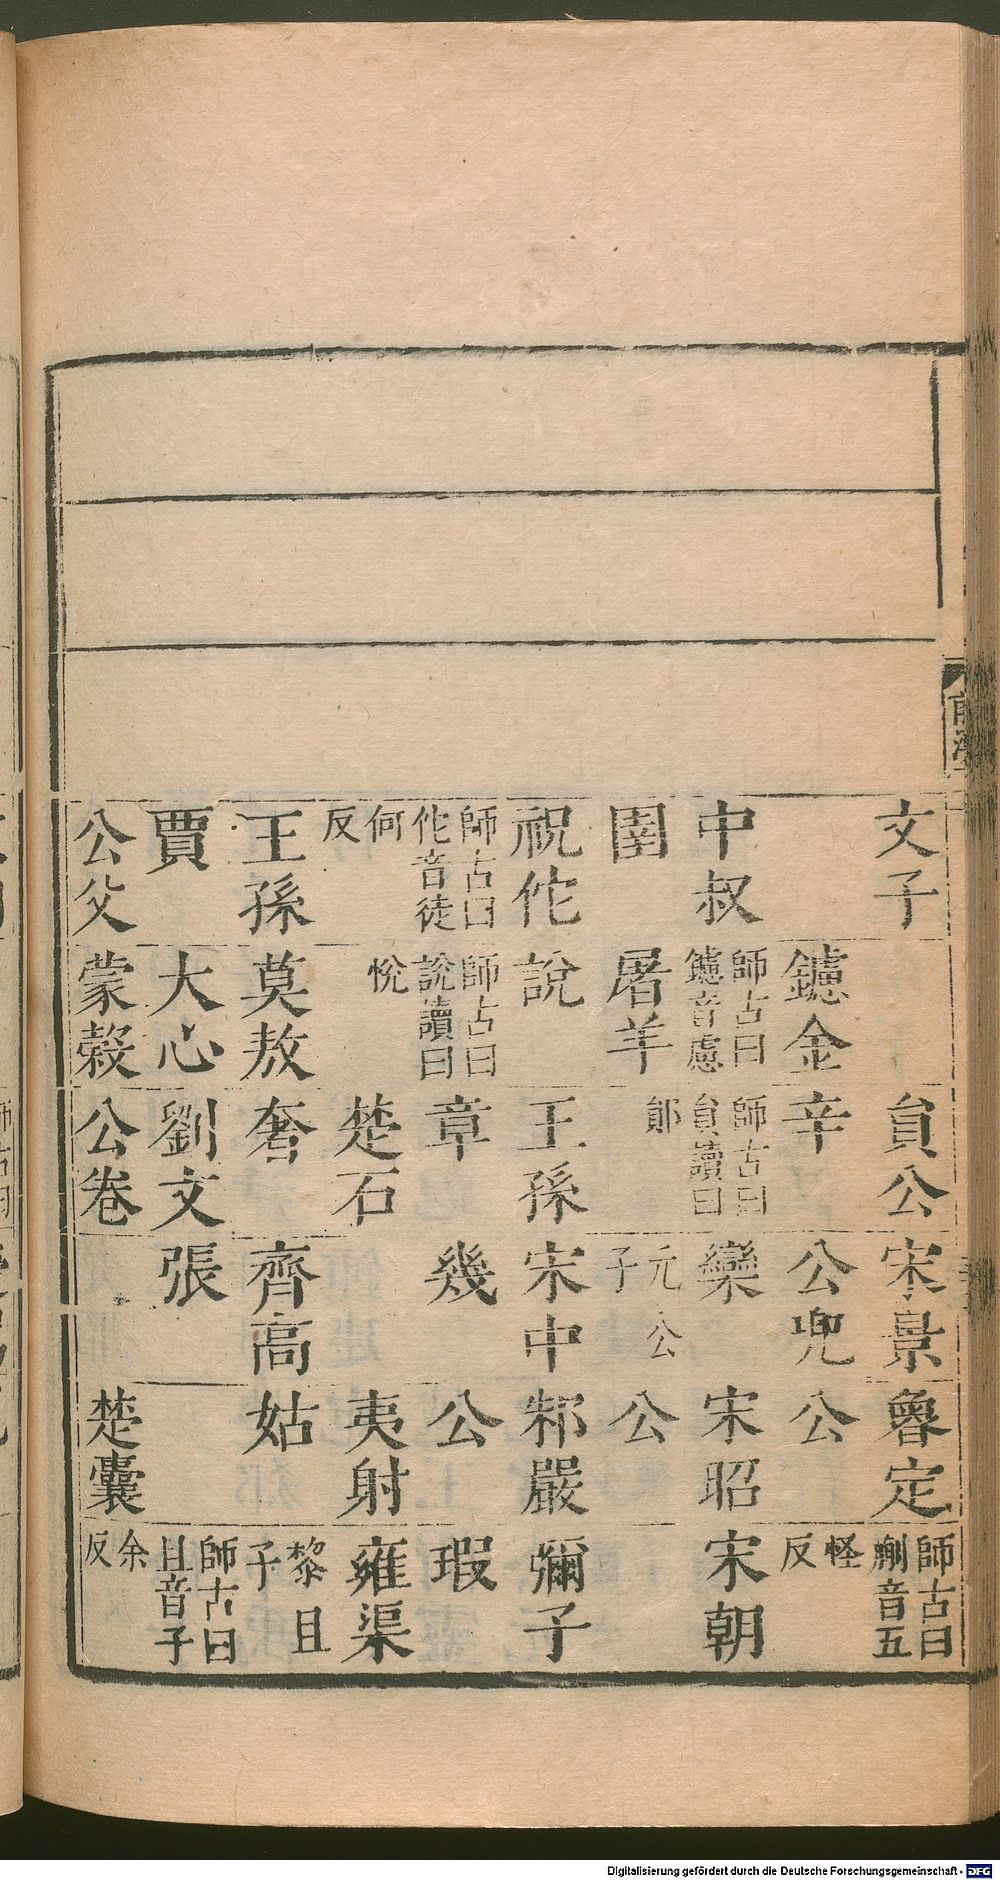 文子　員公宋景魯定師古曰蒯音五
鑢金辛公兜公怪反
中叔師古曰鑢音慮師古曰員讀曰欒宋昭宋朝
圉屠羊鄖元公子公
祝佗說王孫宋中邾嚴彌子
師古曰佗音徒師古曰說讀曰章幾公瑕
何反悅楚石夷射雍渠
王孫莫敖奢齊高姑黎且子
賈大心劉文張師古曰且音子
公父蒙穀公卷楚囊余反
Digitalisierung gefördert durch die Deutsche Forschungsgemeinschaft - DFG